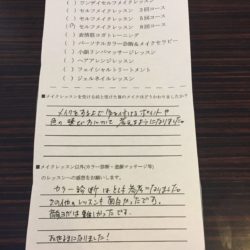 ( ) ワンデイセルフメイクレッスン
( ) セルフメイクレッスン 3回コース
( ) セルフメイクレッスン 5回コース
( ) セルフメイクレッスン 回コース
( ) 表情筋ヨガトレーニング
( ) パーソナルカラー診断&メイクセラピー
( ) 小顔リンパマッサージレッスン
( ) ヘアアレンジレッスン
( ) フェイシャルトリートメント
( ) ジェルネイルレッスン
■メイクレッスンを受ける前と受けた後のメイクはどうかわりましたか?
メイクをするとき 気を付けるポイントや
色の 使い方について 考えるようになりました。
■メイクレッスン以外(カラー診断・造顔マッサージ等)
のレッスンへの感想をお願いします。
カラー診断はとても参考になりました。
その他のレッスンも面白かったです。
顔ヨガは難しかったです。
お世話になりました!